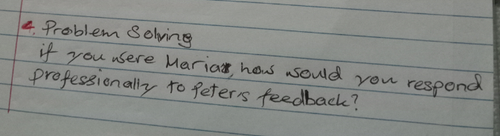 2. Problem Solving
if you were Maria, how would you respond
professionally to Peter's feedback?